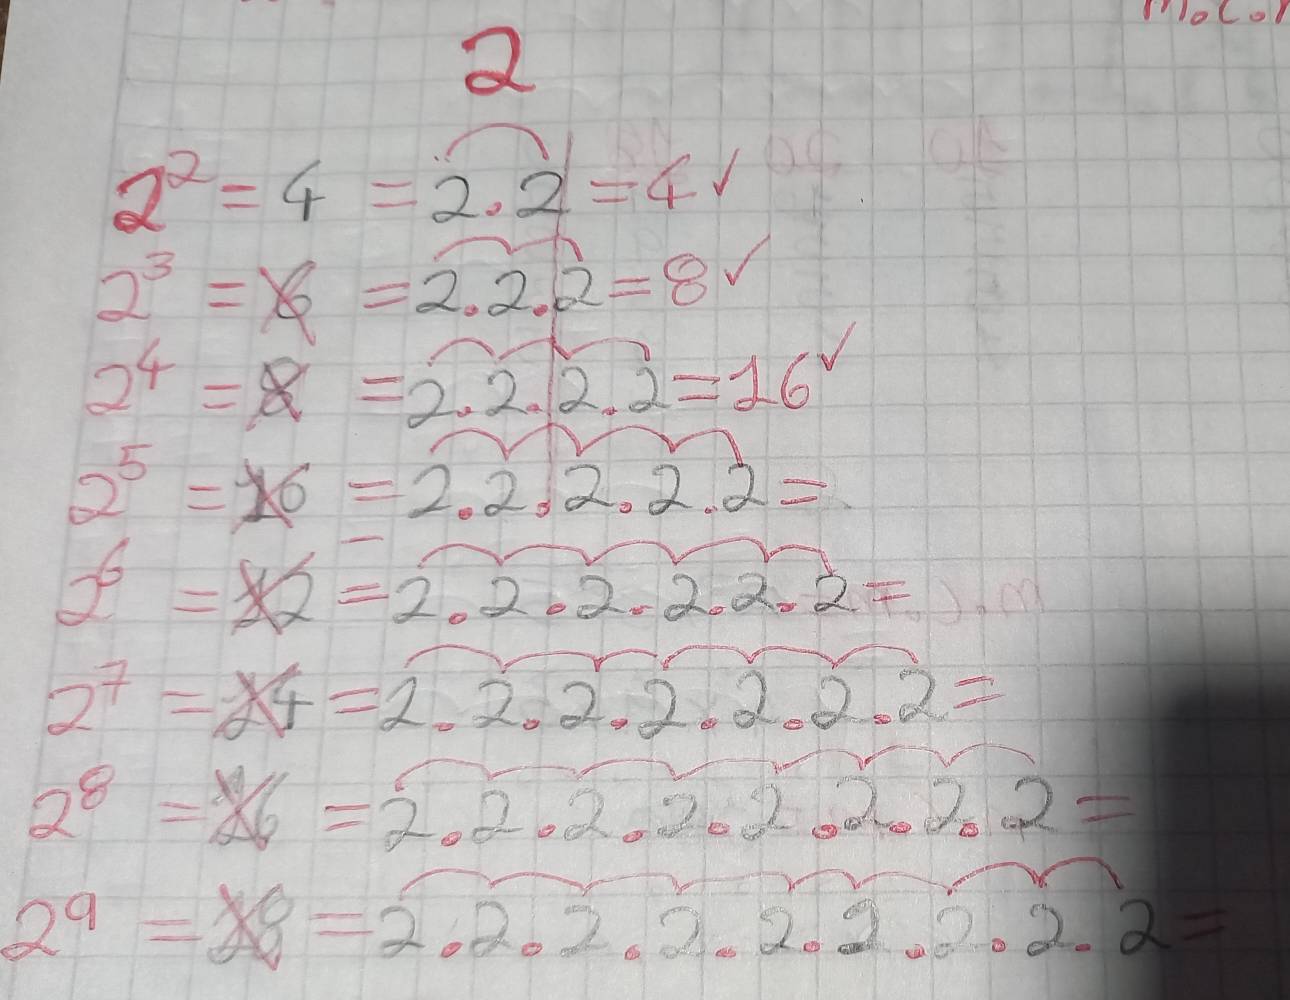 m.c.
2
2² = 4 = 2.2 = 4 ✓
2³ = 6 = 2.2.2 = 8 ✓
2⁴ = 8 = 2.2.2.2 = 16 ✓
2⁵ = 16 = 2.2.2.2.2 =
2⁶ = 12 = 2.2.2.2.2.2 =
2⁷ = 14 = 2.2.2.2.2.2.2 =
2⁸ = 16 = 2.2.2.2.2.2.2.2 =
2⁹ = = 2.2.2.2.2.2.2.2.2 =